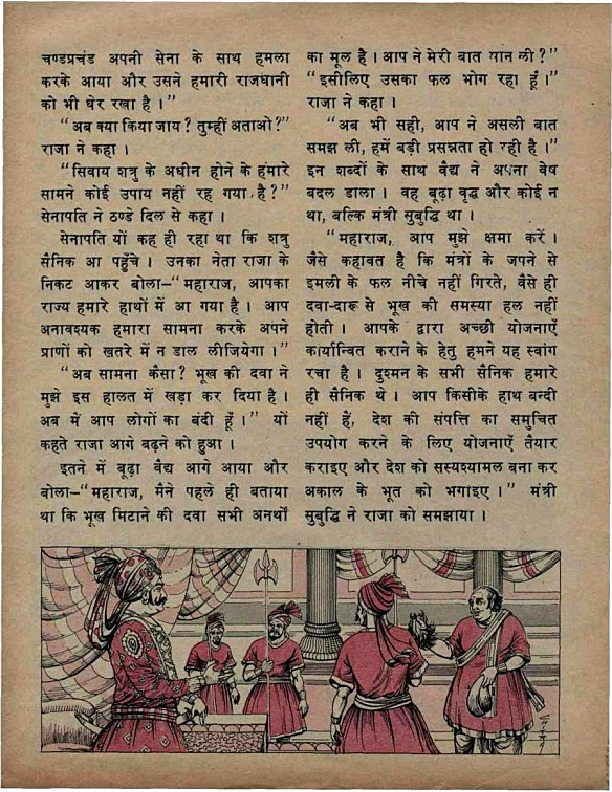 चण्डप्रचंड अपनी सेना के साथ हमला
करके आया और उसने हमारी राजधानी
को भी घेर रखा है।"
"अब क्या किया जाय? तुम्हीं अताओ?"
राजा ने कहा।
"सिवाय शत्रु के अधीन होने के हंमारे
सामने कोई उपाय नहीं रह गया है?"
सेनापति ने ठण्डे दिल से कहा।
सेनापति यों कह ही रहा था कि शत्रु
सैनिक आ पहुँचे। उनका नेता राजा के
निकट आकर बोला–"महाराज, आपका
राज्य हमारे हाथों में आ गया है। आप
अनावश्यक हमारा सामना करके अपने
प्राणों को खतरे में न डाल लीजियेगा।"
"अब सामना कैसा? भूख की दवा ने
मुझे इस हालत में खड़ा कर दिया है।
अब में आप लोगों का बंदी हूँ।" यों
कहते राजा आगे बढ़ने को हुआ।
इतने में बूढ़ा वैद्य आगे आया और
बोला–"महाराज, मैंने पहले ही बताया
था कि भूख मिटाने की दवा सभी अनर्थों
का मूल है। आप ने मेरी बात मान ली?"
"इसीलिए उसका फल भोग रहा हूँ।"
राजा ने कहा।
"अब भी सही, आप ने असली बात
समझ ली, हमें बड़ी प्रसन्नता हो रही है।"
इन शब्दों के साथ वैद्य ने अपना वेष
बदल डाला। वह बूढ़ा वृद्ध और कोई न
था, बल्कि मंत्री सुबुद्धि था।
"महाराज, आप मुझे क्षमा करें।
जैसे कहावत है कि मंत्रों के जपने से
इमली के फल नीचे नहीं गिरते, वैसे ही
दवा-दारू से भूख की समस्या हल नहीं
होती। आपके द्वारा अच्छी योजनाएँ
कार्यान्वित कराने के हेतु हमने यह स्वांग
रचा है। दुश्मन के सभी सैनिक हमारे
ही सैनिक थे। आप किसीके हाथ बन्दी
नहीं हें, देश की संपत्ति का समुचित
उपयोग करने के लिए योजनाएँ तैयार
कराइए और देश को सस्यश्यामल बना कर
अकाल के भूत को भगाइए।" मंत्री
सुबुद्धि ने राजा को समझाया।